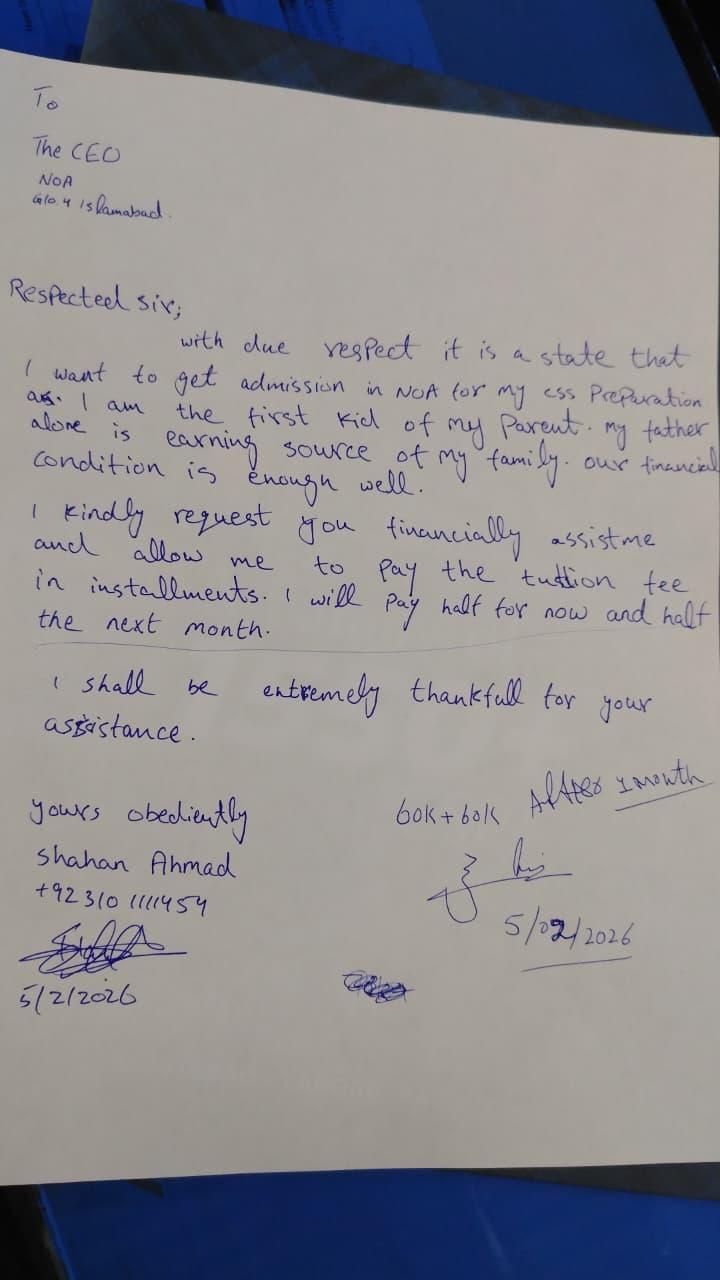 To
The CEO
NOA
G10.4 islamabad.
Respected sir;
with due respect it is a state that
I want to get admission in NOA for my css Preparation
as. I am the first kid of my Parent. my father
alone is earning source of my family. our financial
condition is enough well.
I kindly request you financially assist me
and allow me to pay the tuition fee
in installments. I will pay half for now and half
the next month.
I shall be extremely thankfull for your
assistance.
yours obediently
Shahan Ahmad
+92 310 1111454
5/2/2026
60k + 60k After 1 month
5/02/2026